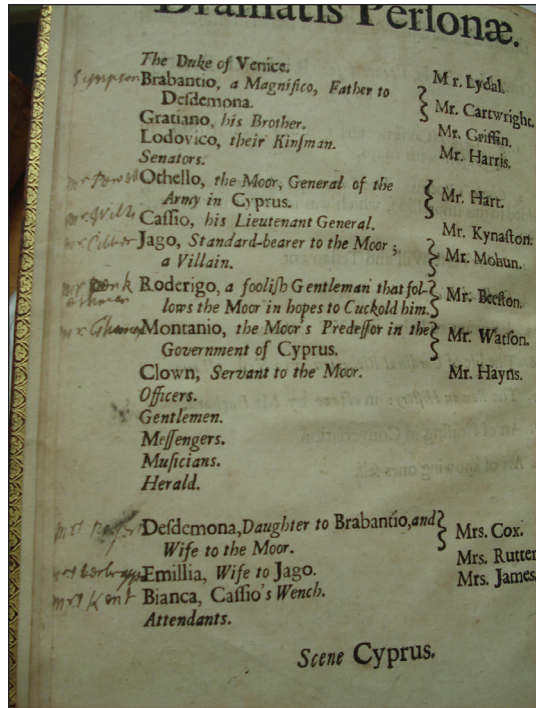 Dramatis Perſonæ.
The Duke of Venice. Mr. Lydal.
Simpson Brabantio, a Magnifico, Father to
Deſdemona. Mr. Cartwright.
Gratiano, his Brother. Mr. Griffin.
Lodovico, their Kinſman. Mr. Harris.
Senators.
Othello, the Moor, General of the
Army in Cyprus. Mr. Hart.
Caſſio, his Lieutenant General. Mr. Kynaſton.
mr. Cibber Jago, Standard-bearer to the Moor;
a Villain. Mr. Mohun.
Roderigo, a fooliſh Gentleman that fol-
lows the Moor in hopes to Cuckold him. Mr. Beeſton.
Montanio, the Moor's Predeſſor in the
Government of Cyprus. Mr. Watſon.
Clown, Servant to the Moor. Mr. Hayns.
Officers.
Gentlemen.
Meſſengers.
Muſicians.
Herald.
Deſdemona, Daughter to Brabantio, and
Wife to the Moor. Mrs. Cox.
Emillia, Wife to Jago. Mrs. Rutter
Kent Bianca, Caſſio's Wench. Mrs. James.
Attendants.
Scene Cyprus.